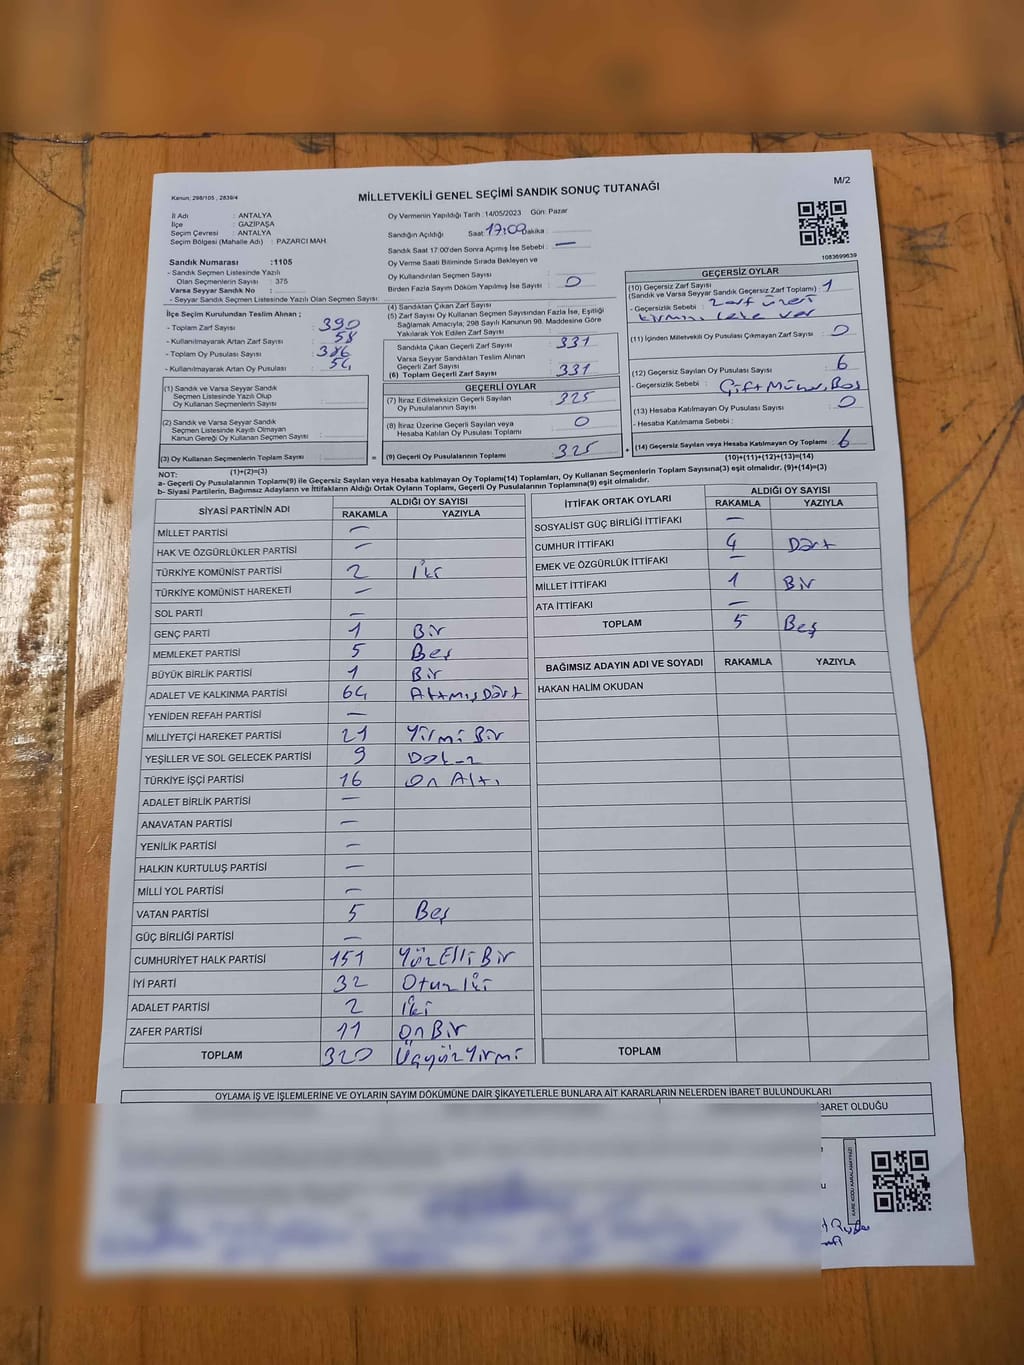 MİLLETVEKİLİ GENEL SEÇİMİ SANDIK SONUÇ TUTANAĞI
M/2
Kanun; 298/105 , 2839/4
İl Adı : ANTALYA
İlçe : GAZİPAŞA
Seçim Çevresi : ANTALYA
Seçim Bölgesi (Mahalle Adı) : PAZARCI MAH.
Sandık Numarası :1105
- Sandık Seçmen Listesinde Yazılı
Olan Seçmenlerin Sayısı : 375
Varsa Seyyar Sandık No :
- Seyyar Sandık Seçmen Listesinde Yazılı Olan Seçmen Sayısı:
Oy Vermenin Yapıldığı Tarih :14/05/2023 Gün: Pazar
Sandığın Açıldığı Saat 17:09 Dakika :
Sandık Saat 17:00'den Sonra Açımış İse Sebebi : —
Oy Verme Saati Bitiminde Sırada Bekleyen ve
Oy Kullandırılan Seçmen Sayısı
Birden Fazla Sayım Döküm Yapılmış İse Sayısı : 0
1083699639
İlçe Seçim Kurulundan Teslim Alınan ;
- Toplam Zarf Sayısı : 390
- Kullanılmayarak Artan Zarf Sayısı : 58
- Toplam Oy Pusulası Sayısı : 386
- Kullanılmayarak Artan Oy Pusulası : 54
(1) Sandık ve Varsa Seyyar Sandık
Seçmen Listesinde Yazılı Olup
Oy Kullanan Seçmenlerin Sayısı :
(2) Sandık ve Varsa Seyyar Sandık
Seçmen Listesinde Kayıtlı Olmayan
Kanun Gereği Oy Kullanan Seçmen Sayısı :
(3) Oy Kullanan Seçmenlerin Toplam Sayısı :
(1)+(2)=(3)
(4) Sandıktan Çıkan Zarf Sayısı
(5) Zarf Sayısı Oy Kullanan Seçmen Sayısından Fazla İse, Eşitliği
Sağlamak Amacıyla; 298 Sayılı Kanunun 98. Maddesine Göre
Yakılarak Yok Edilen Zarf Sayısı :
Sandıkta Çıkan Geçerli Zarf Sayısı : 331
Varsa Seyyar Sandıktan Teslim Alınan
Geçerli Zarf Sayısı
(6) Toplam Geçerli Zarf Sayısı : 331
GEÇERLİ OYLAR
(7) İtiraz Edilmeksizin Geçerli Sayılan
Oy Pusulalarının Sayısı : 325
(8) İtiraz Üzerine Geçerli Sayılan veya
Hesaba Katılan Oy Pusulası Toplamı : 0
= (9) Geçerli Oy Pusulalarının Toplamı : 325
GEÇERSİZ OYLAR
(10) Geçersiz Zarf Sayısı
(Sandık ve Varsa Seyyar Sandık Geçersiz Zarf Toplamı) : 1
- Geçersizlik Sebebi : Zarf üzeri
kırmızı leke var
(11) İçinden Milletvekili Oy Pusulası Çıkmayan Zarf Sayısı : 0
(12) Geçersiz Sayılan Oy Pusulası Sayısı : 6
- Geçersizlik Sebebi : Çift Mühür, Boş
(13) Hesaba Katılmayan Oy Pusulası Sayısı : 0
- Hesaba Katılmama Sebebi :
+ (14) Geçersiz Sayılan veya Hesaba Katılmayan Oy Toplamı : 6
(10)+(11)+(12)+(13)=(14)
NOT:
a- Geçerli Oy Pusulalarının Toplamı(9) ile Geçersiz Sayılan veya Hesaba katılmayan Oy Toplamı(14) Toplamları, Oy Kullanan Seçmenlerin Toplam Sayısına(3) eşit olmalıdır. (9)+(14)=(3)
b- Siyasi Partilerin, Bağımsız Adayların ve İttifakların Aldığı Ortak Oyların Toplamı, Geçerli Oy Pusulalarının Toplamına(9) eşit olmalıdır.
SİYASİ PARTİNİN ADI ALDIĞI OY SAYISI
RAKAMLA YAZIYLA
MİLLET PARTİSİ —
HAK VE ÖZGÜRLÜKLER PARTİSİ —
TÜRKİYE KOMÜNİST PARTİSİ 2 İki
TÜRKİYE KOMÜNİST HAREKETİ —
SOL PARTİ —
GENÇ PARTİ 1 Bir
MEMLEKET PARTİSİ 5 Beş
BÜYÜK BİRLİK PARTİSİ 1 Bir
ADALET VE KALKINMA PARTİSİ 64 Altmış Dört
YENİDEN REFAH PARTİSİ —
MİLLİYETÇİ HAREKET PARTİSİ 21 Yirmi Bir
YEŞİLLER VE SOL GELECEK PARTİSİ 9 Dokuz
TÜRKİYE İŞÇİ PARTİSİ 16 On Altı
ADALET BİRLİK PARTİSİ —
ANAVATAN PARTİSİ —
YENİLİK PARTİSİ —
HALKIN KURTULUŞ PARTİSİ —
MİLLİ YOL PARTİSİ —
VATAN PARTİSİ 5 Beş
GÜÇ BİRLİĞİ PARTİSİ —
CUMHURİYET HALK PARTİSİ 151 Yüz Elli Bir
İYİ PARTİ 32 Otuz İki
ADALET PARTİSİ 2 İki
ZAFER PARTİSİ 11 On Bir
TOPLAM 320 Üçyüz Yirmi
İTTİFAK ORTAK OYLARI ALDIĞI OY SAYISI
RAKAMLA YAZIYLA
SOSYALİST GÜÇ BİRLİĞİ İTTİFAKI —
CUMHUR İTTİFAKI 4 Dört
EMEK VE ÖZGÜRLÜK İTTİFAKI —
MİLLET İTTİFAKI 1 Bir
ATA İTTİFAKI —
TOPLAM 5 Beş
BAĞIMSIZ ADAYIN ADI VE SOYADI RAKAMLA YAZIYLA
HAKAN HALİM OKUDAN
TOPLAM
OYLAMA İŞ VE İŞLEMLERİNE VE OYLARIN SAYIM DÖKÜMÜNE DAİR ŞİKAYETLERLE BUNLARA AİT KARARLARIN NELERDEN İBARET BULUNDUKLARI
BARET OLDUĞU